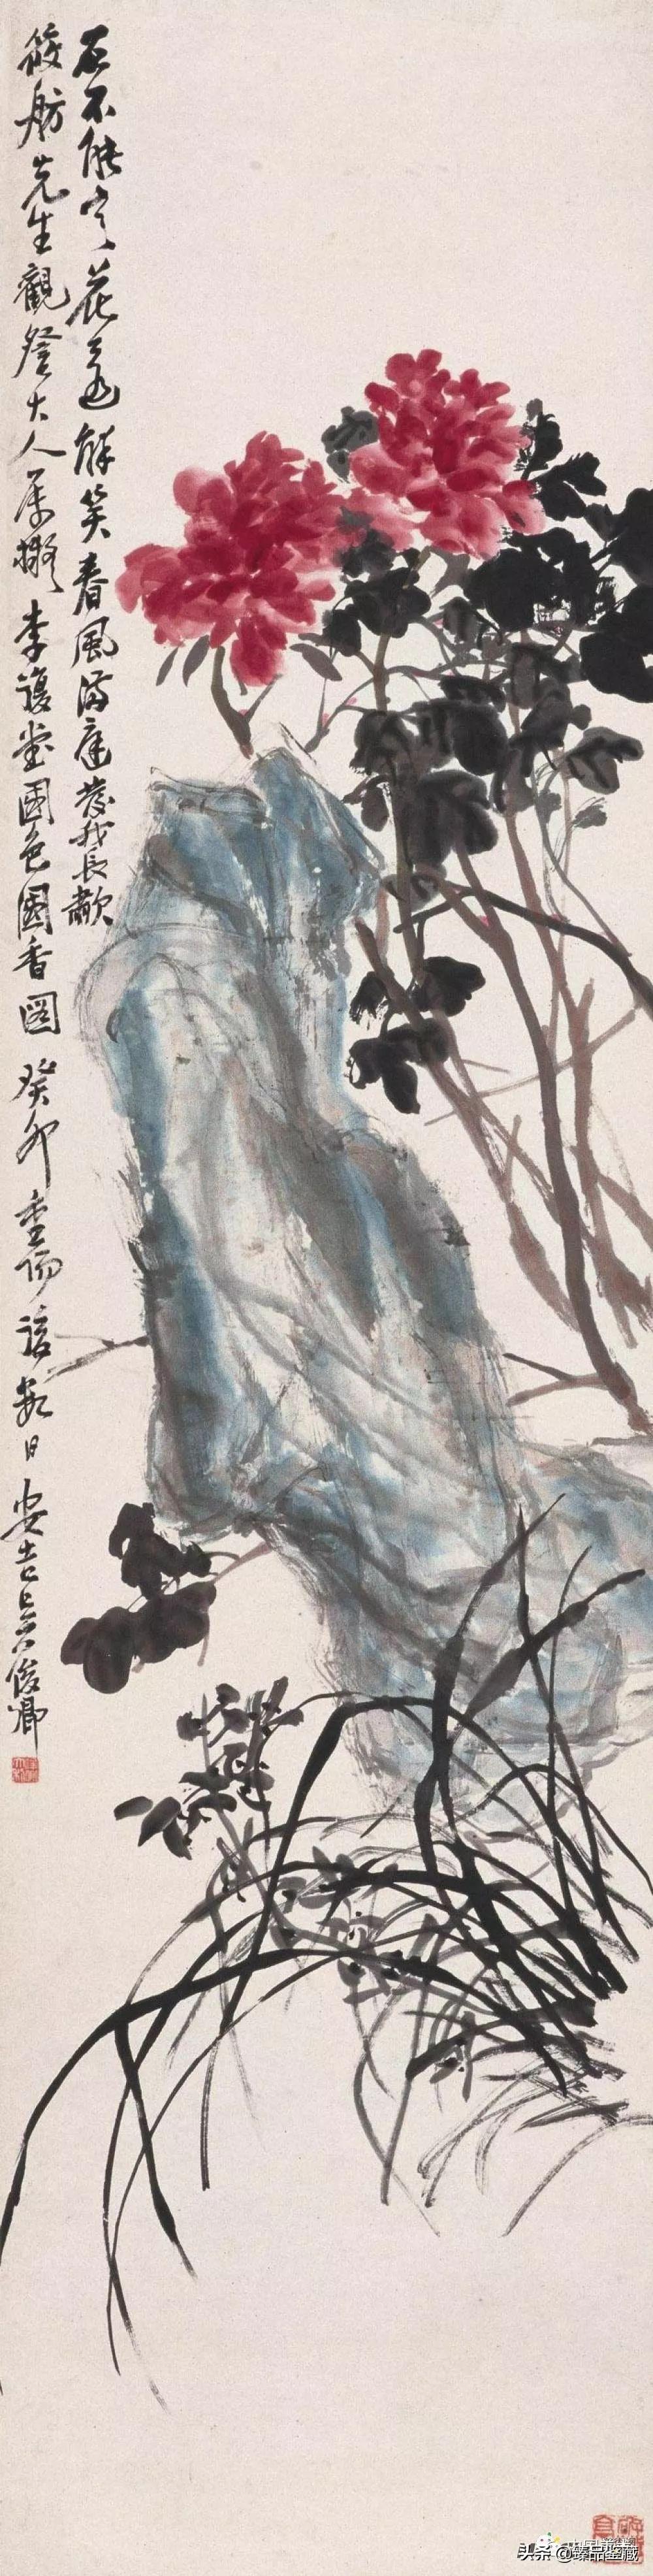 石不能言花還解笑春風滿庭發我長歗
筱舫先生觀詧大人屬擬李復堂國色國香圖癸卯重陽後數日安吉吳俊卿
头条@臻品鉴藏